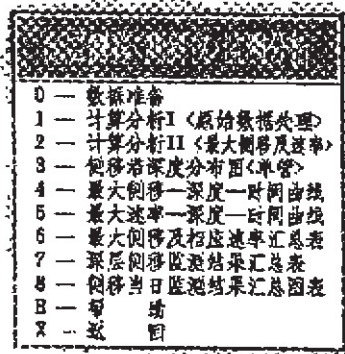 0 — 数据准备
1 — 计算分析I〈原始数据处理〉
2 — 计算分析II〈最大侧移及速率〉
3 — 侧移沿深度分布图〈单管〉
4 — 最大侧移—深度—时间曲线
5 — 最大速率—深度—时间曲线
6 — 最大侧移及相应速率汇总表
7 — 深层侧移监测结果汇总表
8 — 侧移当日监测结果汇总图表
H — 帮 助
X — 返 回